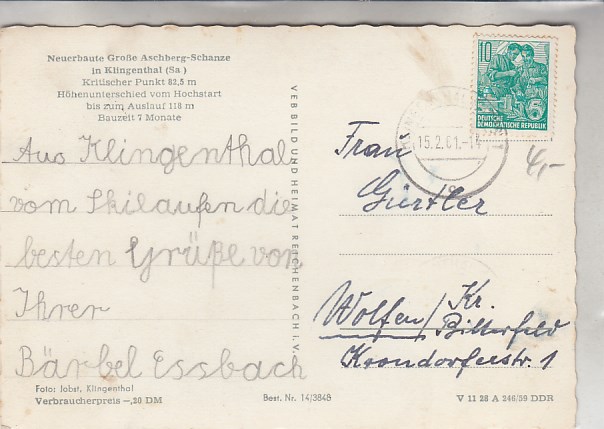 Neuerbaute Große Aschberg-Schanze
in Klingenthal (Sa)
Kritischer Punkt 82,5 m
Höhenunterschied vom Hochstart
bis zum Auslauf 118 m
Bauzeit 7 Monate
Aus Klingenthal
vom Skilaufen die
besten Grüße von
Ihrer
Bärbel Essbach
Foto: Jobst, Klingenthal
Verbraucherpreis -,20 DM
VEB BILD UND HEIMAT REICHENBACH I. V.
Best. Nr. 14/3848
10
5
DEUTSCHE
DEMOKRATISCHE REPUBLIK
15.2.61.-14
4,-
Frau
Gürtler
Wolfen / Kr.
Bitterfeld
Krondorferstr. 1
V 11 28 A 246/59 DDR